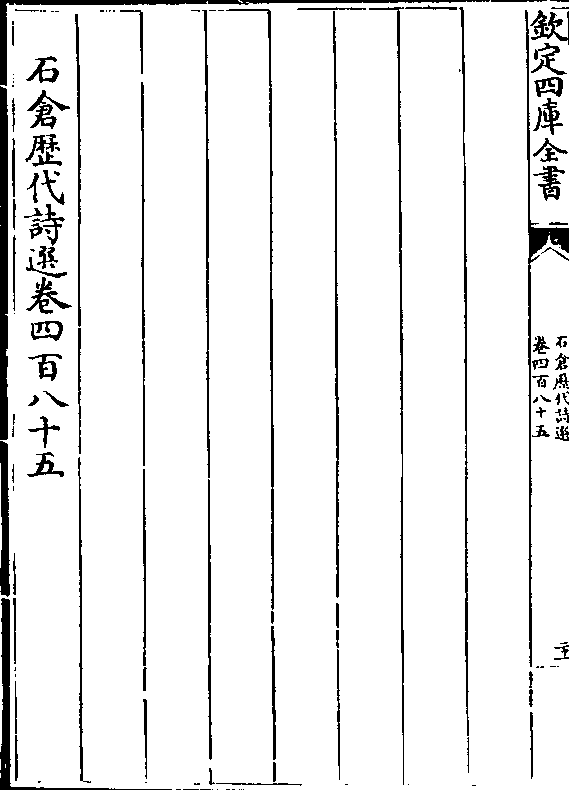 欽定四庫全書
石倉歴代詩選
卷四百八十五
石倉歴代詩選卷四百八十五